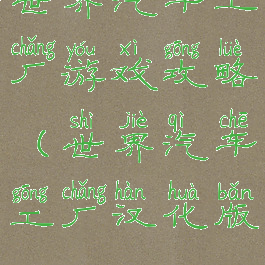 世界汽车工
chǎng yóu xì gōng lüè
厂游戏攻略
shì jiè qì chē
（世界汽车
gōng chǎng hàn huà bǎn
工厂汉化版